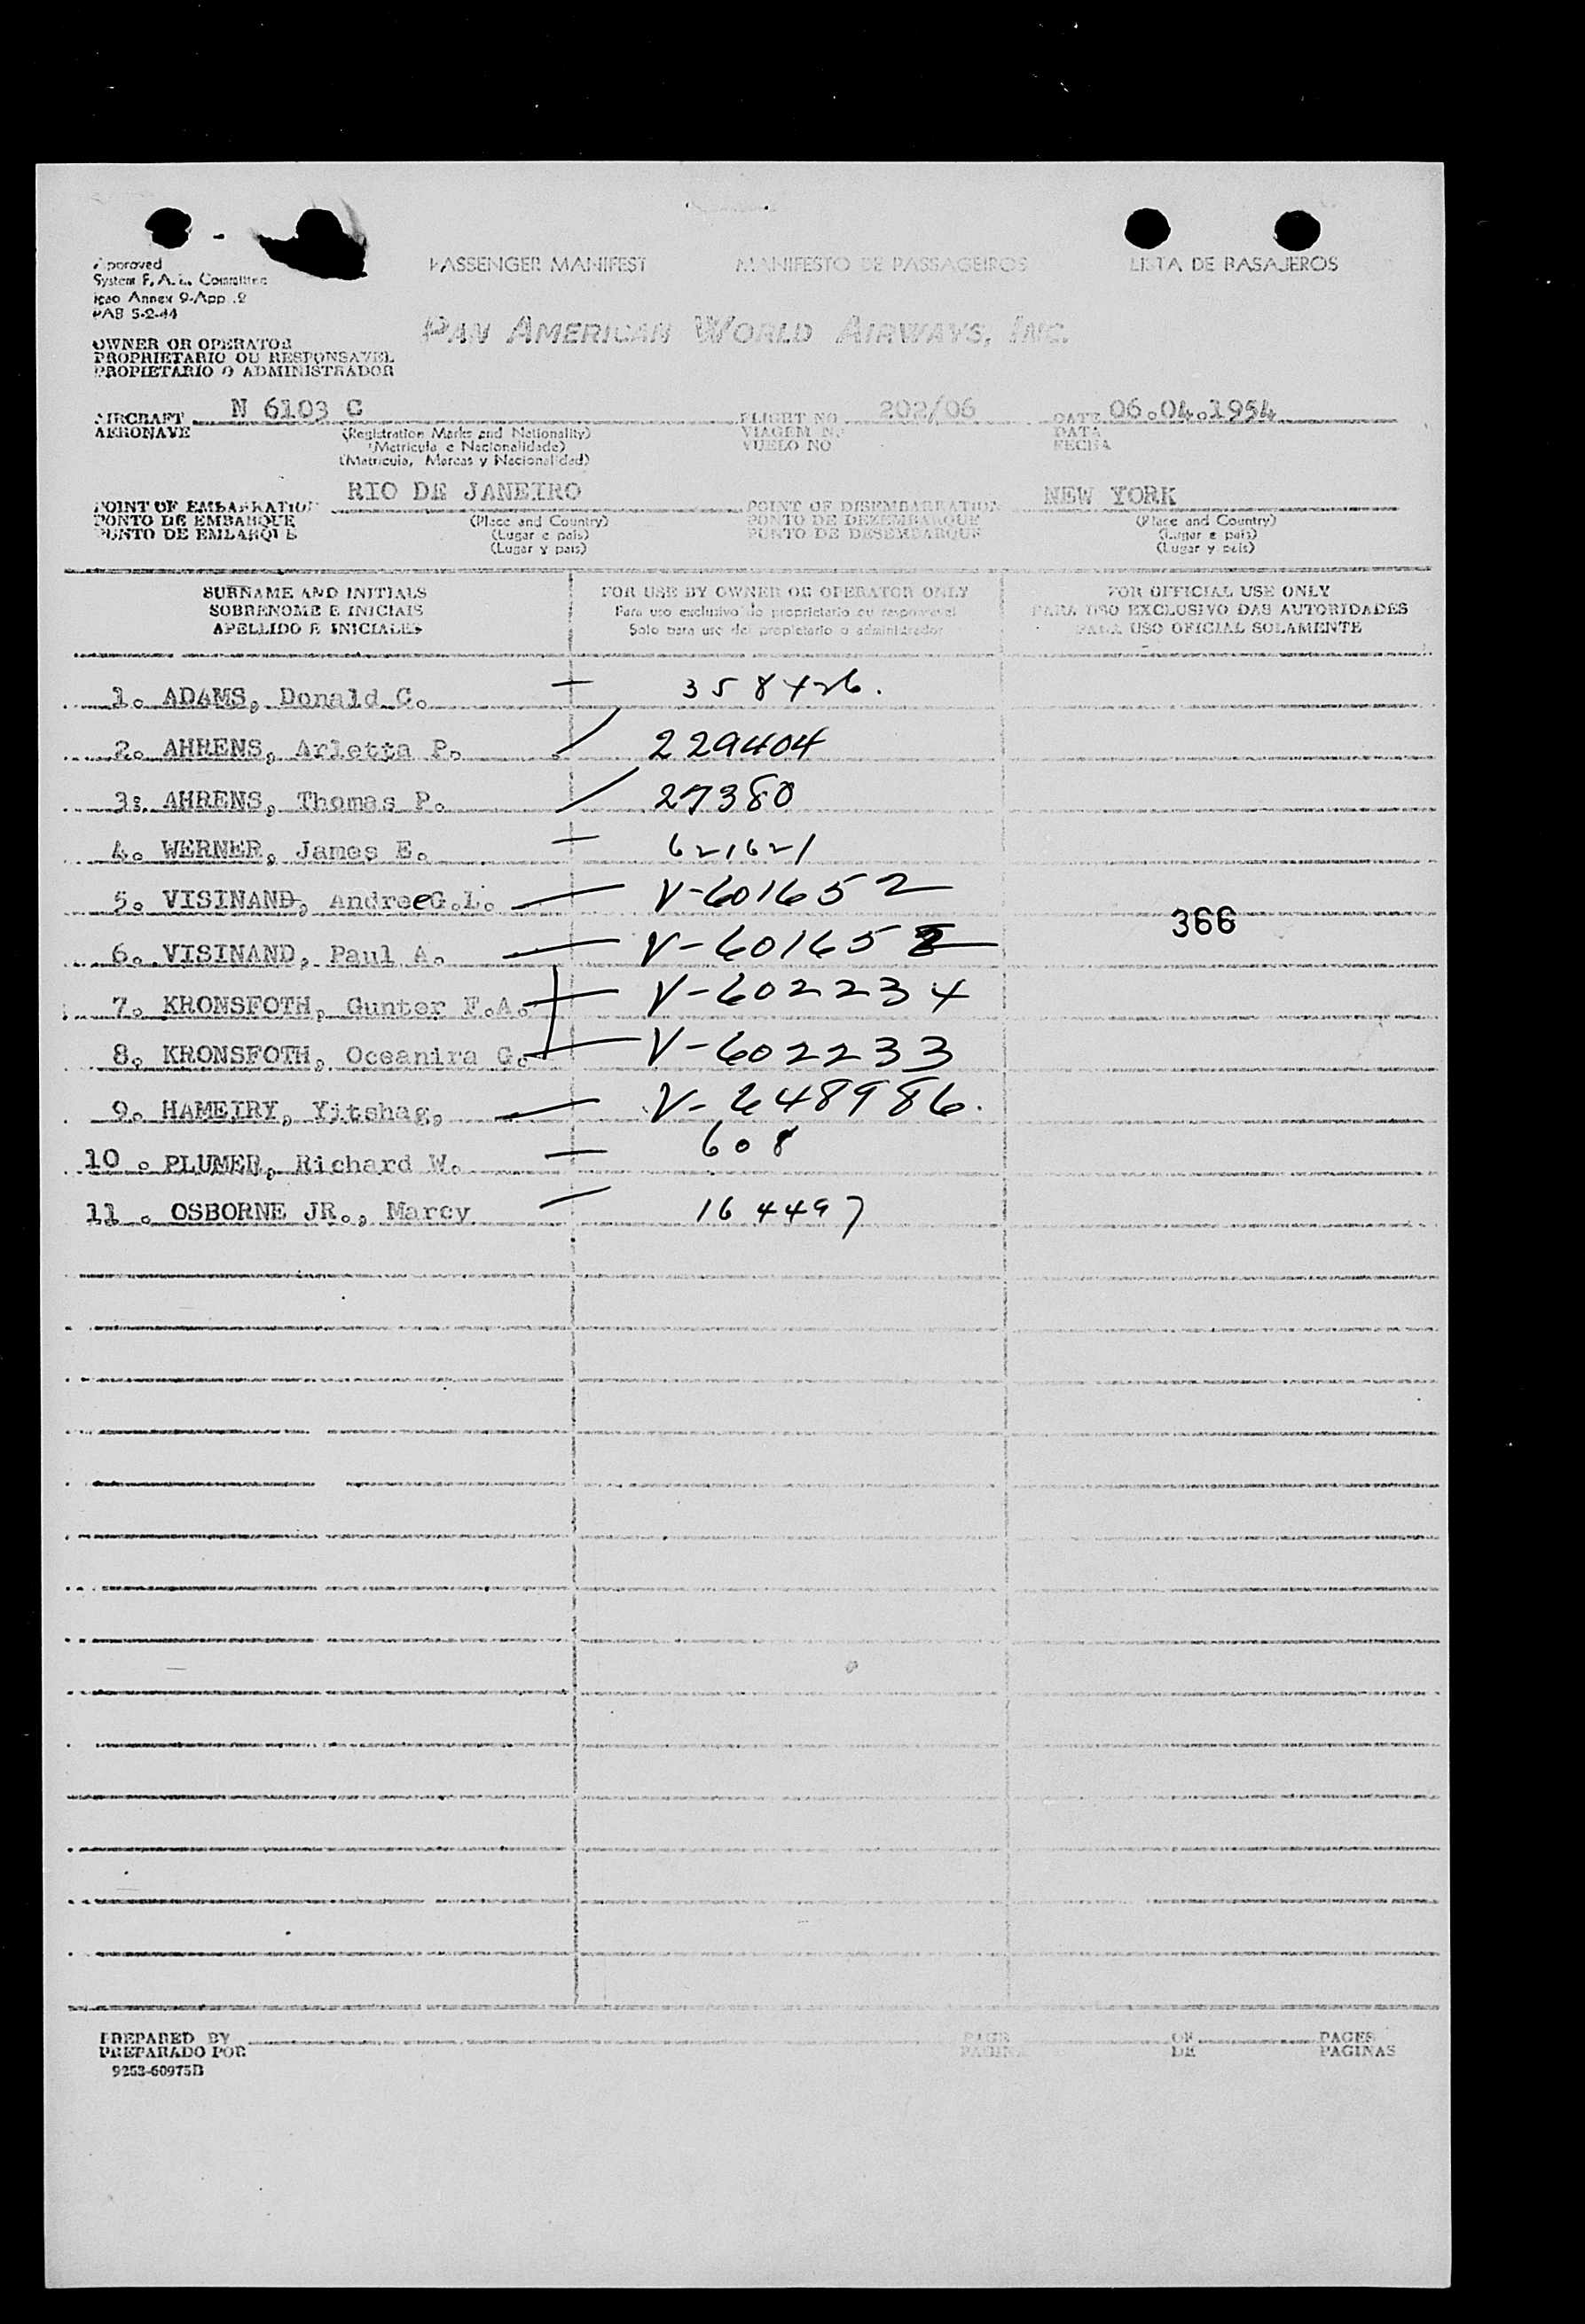 Approved
System F. A. L. Committee
icao Annex 9-App .2
PAB 5-2-44
PASSENGER MANIFEST MANIFESTO DE PASSAGEIROS LISTA DE PASAJEROS
PAN AMERICAN WORLD AIRWAYS, INC.
OWNER OR OPERATOR
PROPRIETARIO OU RESPONSAVEL
PROPIETARIO O ADMINISTRADOR
AIRCRAFT N 6103 C FLIGHT NO 202/06 DATE 06.04.1954
AERONAVE (Registration Marks and Nationality) VIAGEM N. DATA
(Matricula e Nacionalidade) VUELO NO FECHA
(Matricula, Marcas y Nacionalidad)
POINT OF EMBARKATION RIO DE JANEIRO POINT OF DISEMBARKATION NEW YORK
PONTO DE EMBARQUE (Place and Country) PONTO DE DEZEMBARQUE (Place and Country)
PUNTO DE EMBARQUE (Lugar e pais) PUNTO DE DESEMBARQUE (Lugar e pais)
(Lugar y pais) (Lugar y pais)
SURNAME AND INITIALS FOR USE BY OWNER OR OPERATOR ONLY FOR OFFICIAL USE ONLY
SOBRENOME E INICIAIS Para uso exclusivo do proprietario ou responsavel PARA USO EXCLUSIVO DAS AUTORIDADES
APELLIDO E INICIALES Solo para uso del propietario o administrador PARA USO OFICIAL SOLAMENTE
1. ADAMS, Donald C. 358426.
2. AHRENS, Arletta P. 229404
3. AHRENS, Thomas P. 27380
4. WERNER, James E. 621621
5. VISINAND, AndreeG.L. V-601652
366
6. VISINAND, Paul A. V-60165
7. KRONSFOTH, Gunter F.A. V-602234
8. KRONSFOTH, Oceanira G. V-602233
9. HAMEIRY, Yitshag, V-648986.
10 . PLUMER, Richard W. 608
11 . OSBORNE JR., Marcy 164497
PREPARED BY PAGE OF PAGES
PREPARADO POR PAGINA DE PAGINAS
9253-60975B